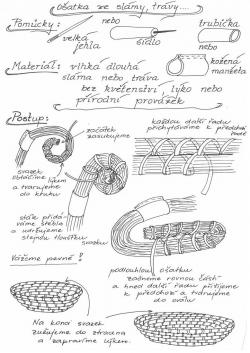 Ošatka ze slámy, trávy....
Pomůcky: nebo trubička
velká
jehla
šídlo
nebo
kožená
manžeta
Materiál: vlhká dlouhá
sláma nebo tráva
bez květenství, lýko nebo
přírodní provázek
Postup:
začátek
zašukujeme
každou další řadu
přichytáváme k předchozí
svazek
obtáčíme lýkem
a tvarujeme
do kruhu
stále přidá-
váme stébla
a udržujeme
stejnou tloušťku
svazku
Vážeme pevně!
podlouhlou ošatku
začneme rovnou částí
a hned další řadu přišijeme
k předchozí a tvarujeme
do oválu
Na konci svazek
zužujeme do ztracena
a zapravíme lýkem.